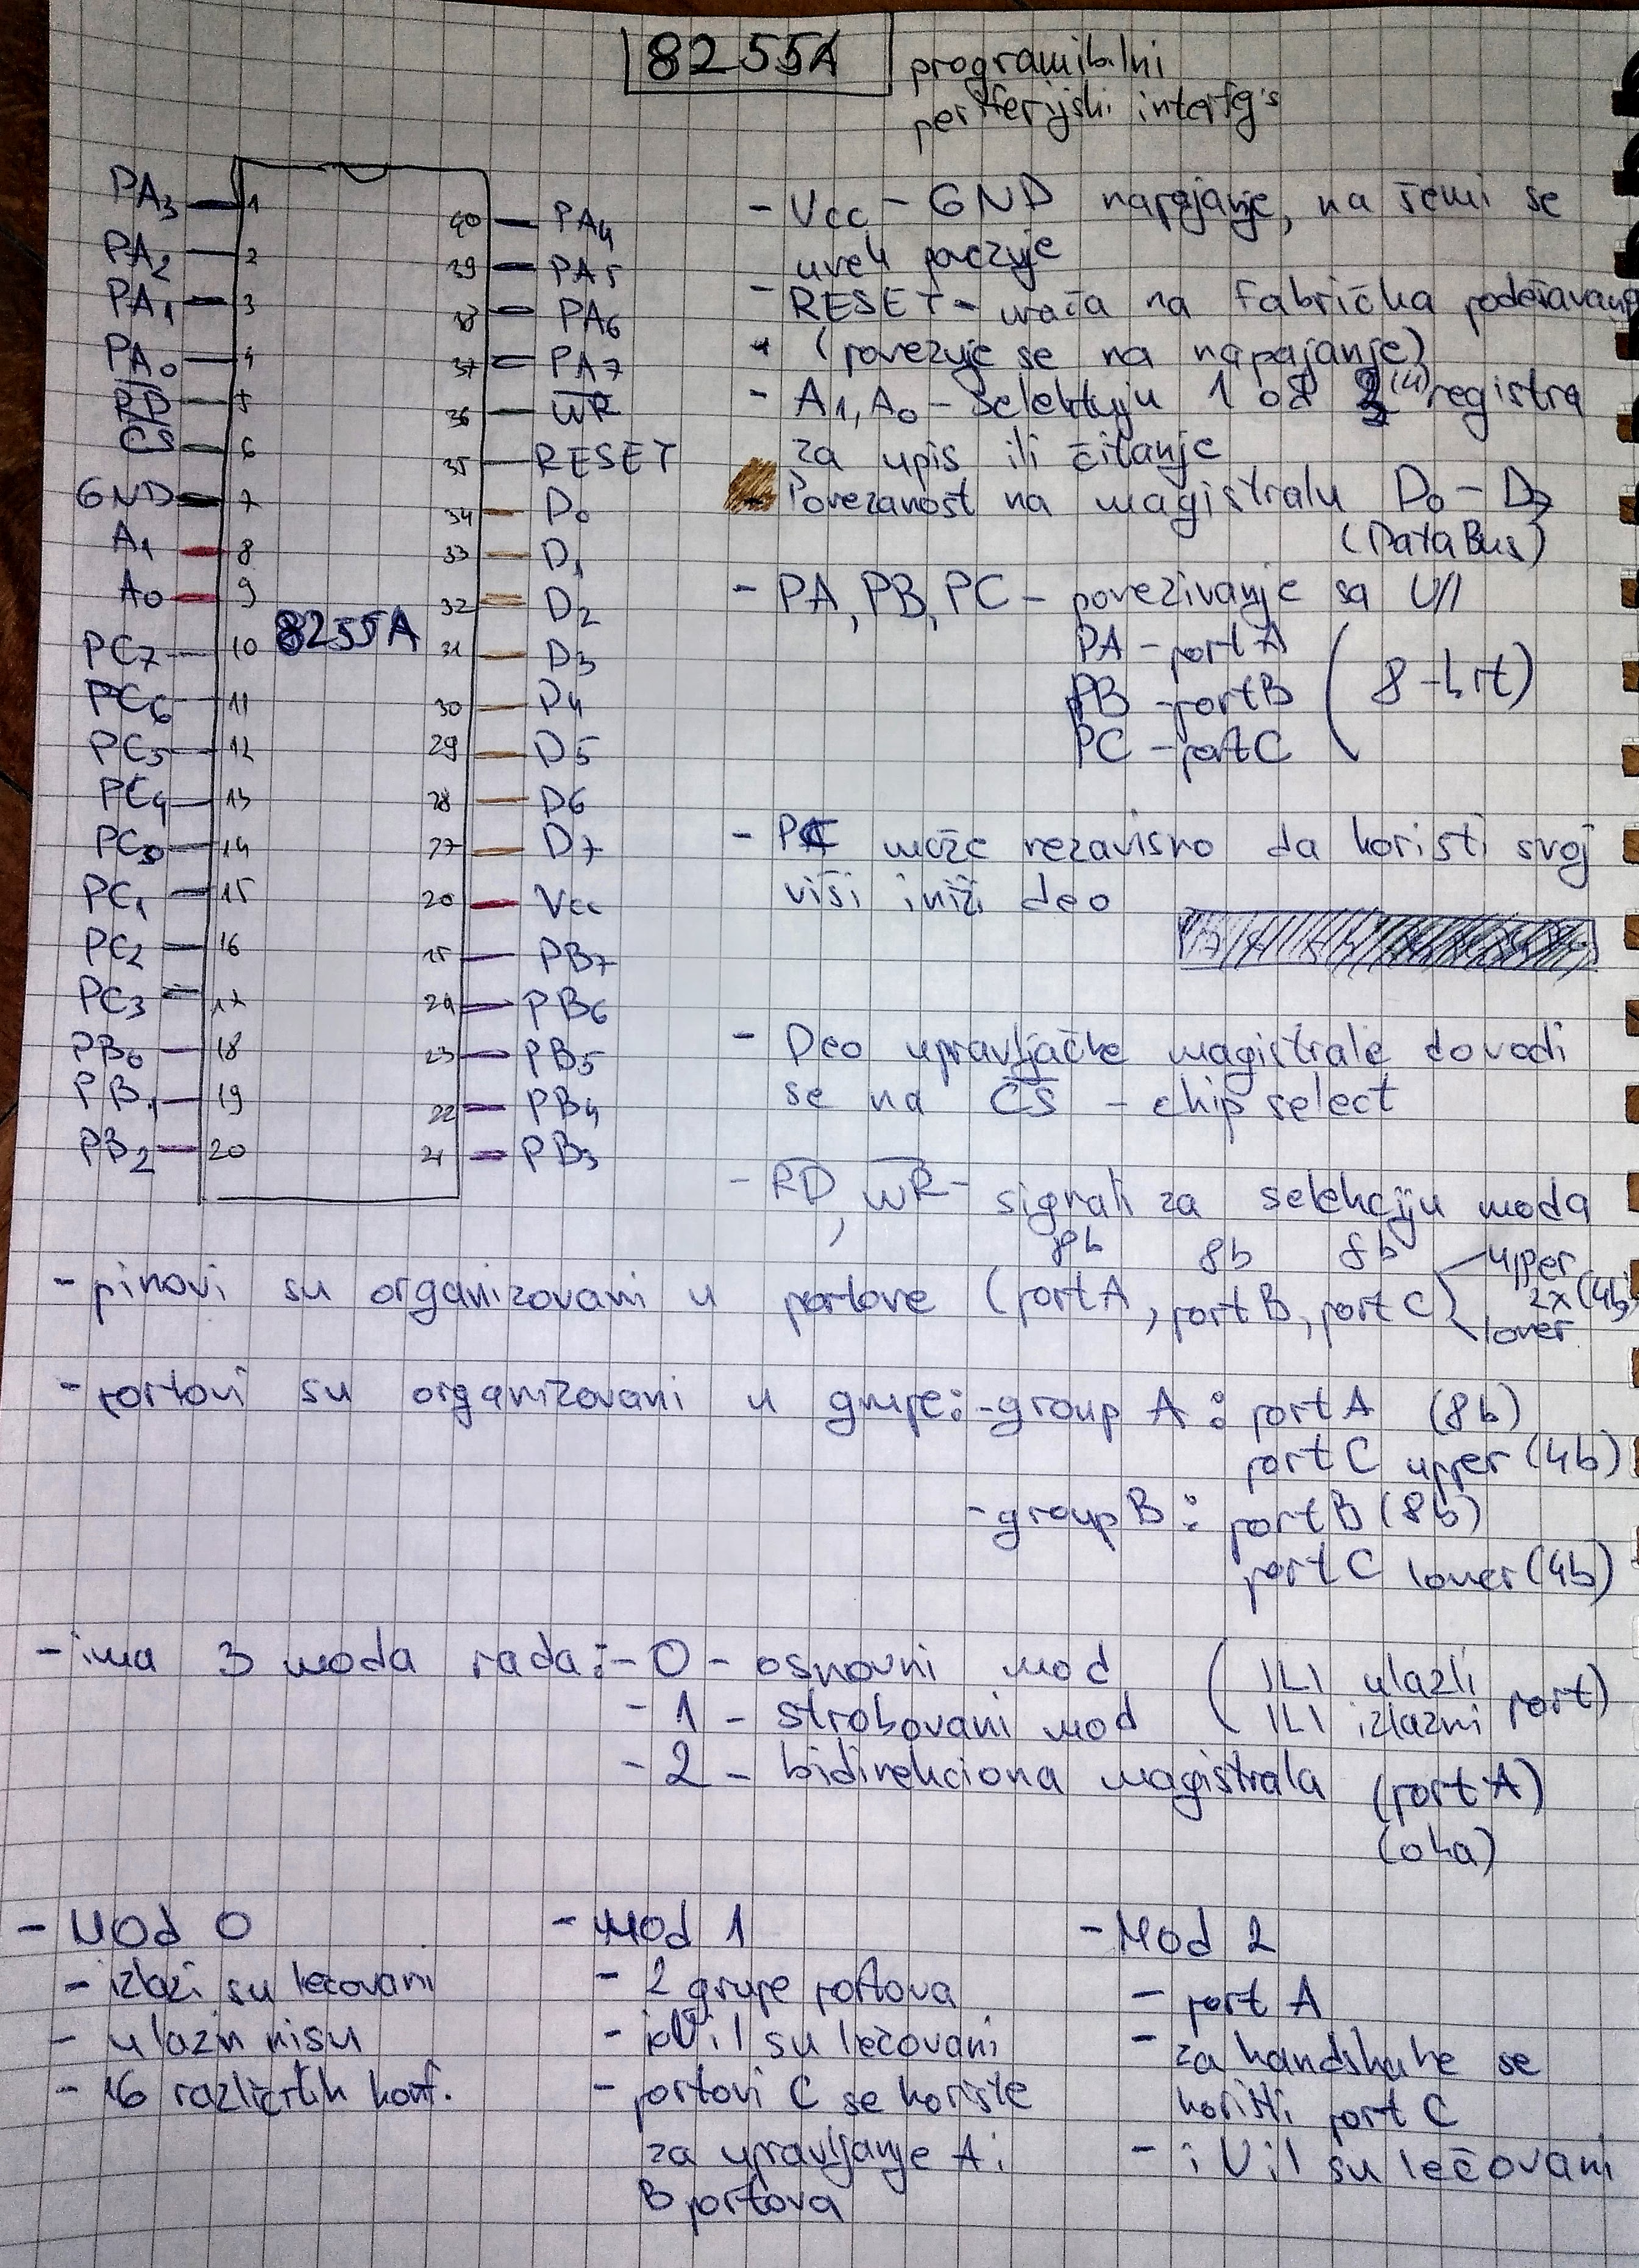 8255A
programibilni
periferijski interfejs
PA3 1
PA2 2
PA1 3
PA0 4
RD 5
CS 6
GND 7
A1 8
A0 9
PC7 10
PC6 11
PC5 12
PC4 13
PC0 14
PC1 15
PC2 16
PC3 17
PB0 18
PB1 19
PB2 20
8255A
40 PA4
39 PA5
38 PA6
37 PA7
36 WR
35 RESET
34 D0
33 D1
32 D2
31 D3
30 D4
29 D5
28 D6
27 D7
20 Vcc
25 PB7
24 PB6
23 PB5
22 PB4
21 PB3
- Vcc - GND napajanje, na šemi se
uvek
- RESET - vraća na fabrička podešavanja
(povezuje se na napajanje)
- A1, A0 - selektuju 1 od 3 (4) registra
za upis ili čitanje
- Povezanost na magistralu D0 - D7
(Data Bus)
- PA, PB, PC - povezivanje sa U/I
PA - port A
PB - port B (8-bit)
PC - port C
- PC može nezavisno da koristi svoj
viši i niži deo
- Deo upravljačke magistrale dovodi
se na CS - chip select
- RD, WR - signali za selekciju moda
8b 8b 8b
- pinovi su organizovani u portove (port A, port B, port C) upper
2x(4b)
lover
- portovi su organizovani u grupe: - group A: port A (8b)
port C upper (4b)
- group B: port B (8b)
port C lower (4b)
- ima 3 moda rada: - 0 - osnovni mod (ILI ulazli
- 1 - strobovani mod ILI izlazni port)
- 2 - bidirekciona magistrala (port A)
(oka)
- Mod 0
- izlazi su lečovani
- ulazni nisu
- 16 različitih konf.
- Mod 1
- 2 grupe portova
- i U i I su lečovani
- portovi C se koriste
za upravljanje A i
B portova
- Mod 2
- port A
- za handshake se
koristi port C
- i U i I su lečovani